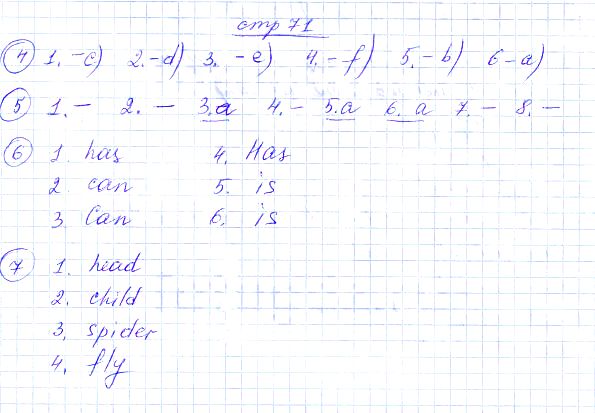 стр 71
4 1. - c) 2. - d) 3. - e) 4. - f) 5. - b) 6 - a)
5 1. - 2. - 3. a 4. - 5. a 6. a 7. - 8. -
6 1. has 4. Has
2. can 5. is
3. Can 6. is
7 1. head
2. child
3. spider
4. fly